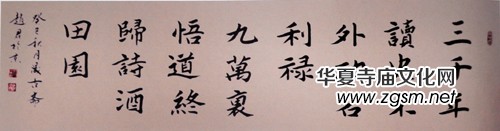 三千年
讀史不
外功名
利禄
九萬裏
悟道終
歸詩酒
田園
癸巳秋月
华夏寺庙文化网
www.zgsm.net